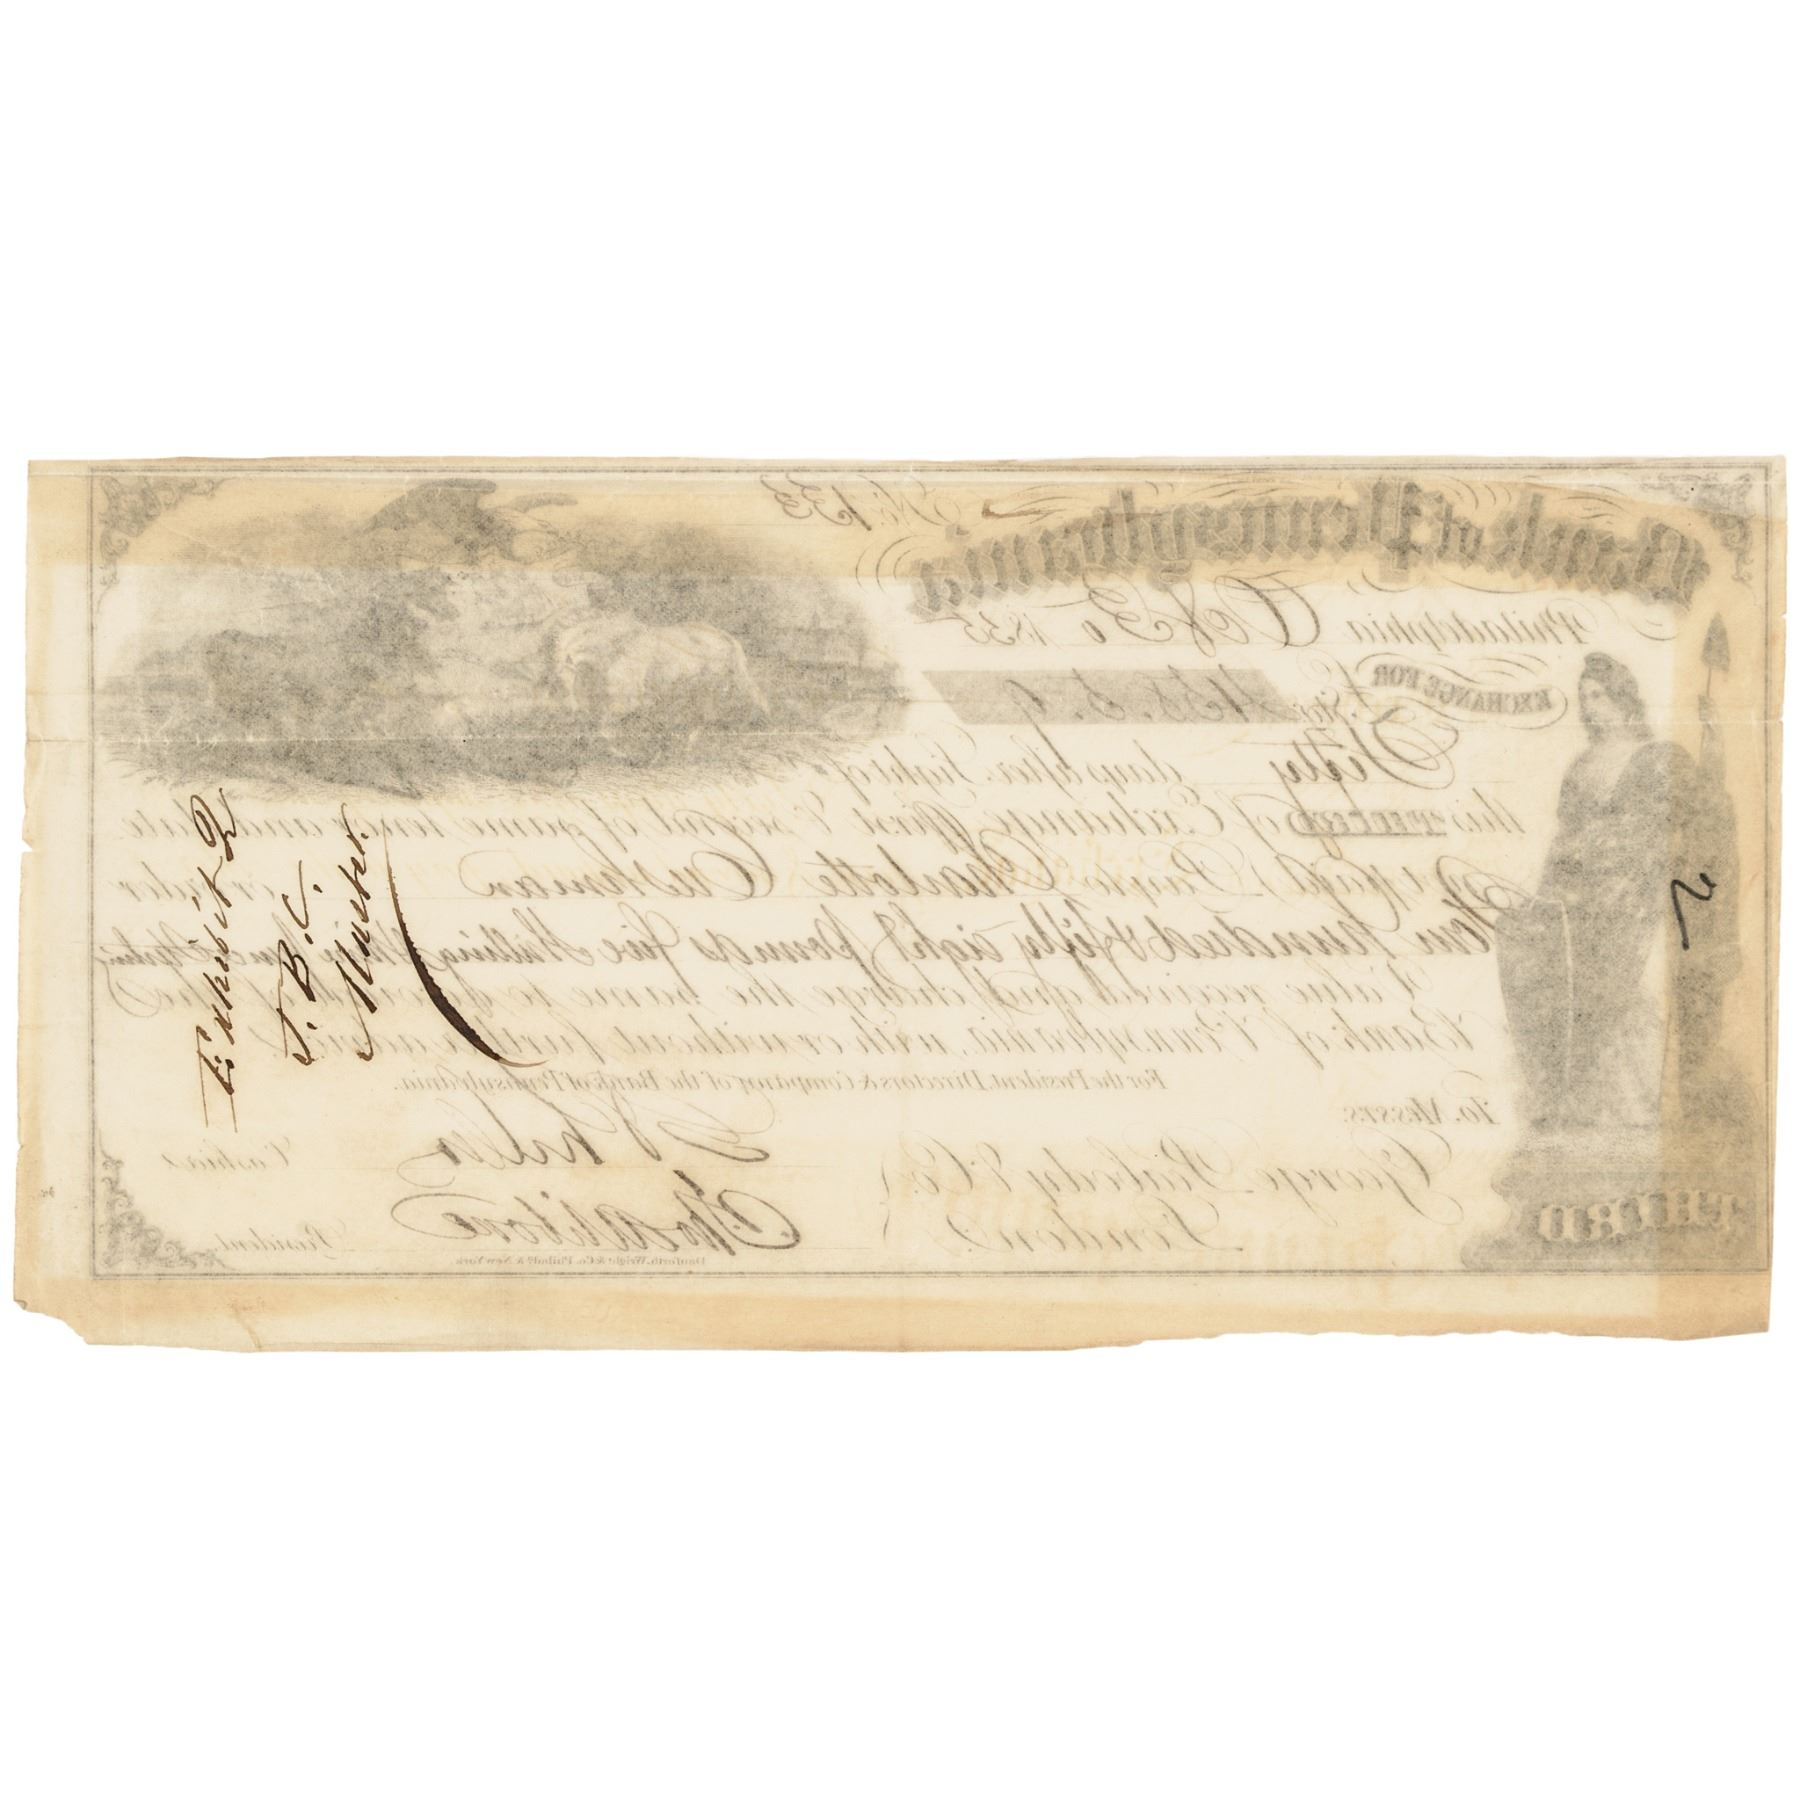 Bank of Pennsylvania
No. 133
Philadelphia Oct 30 1855
EXCHANGE FOR £ Stg. 458. 5. 9
Sixty days after Sight of
this THIRD of Exchange (first & second of same tenor and date
unpaid) Pay to Charlotte Cushman or order
Four hundred & fifty eight pounds five Shillings & nine Sterling
Value received and charge the same to account of the
Bank of Pennsylvania, with or without further advice.
For the President, Directors & Company of the Bank of Pennsylvania.
To Messrs.
George Peabody & Co.
London
Cashier
President.
THIRD
Danforth, Wright & Co. Philada. & New York
Exhibit Z
J. B. C.
2